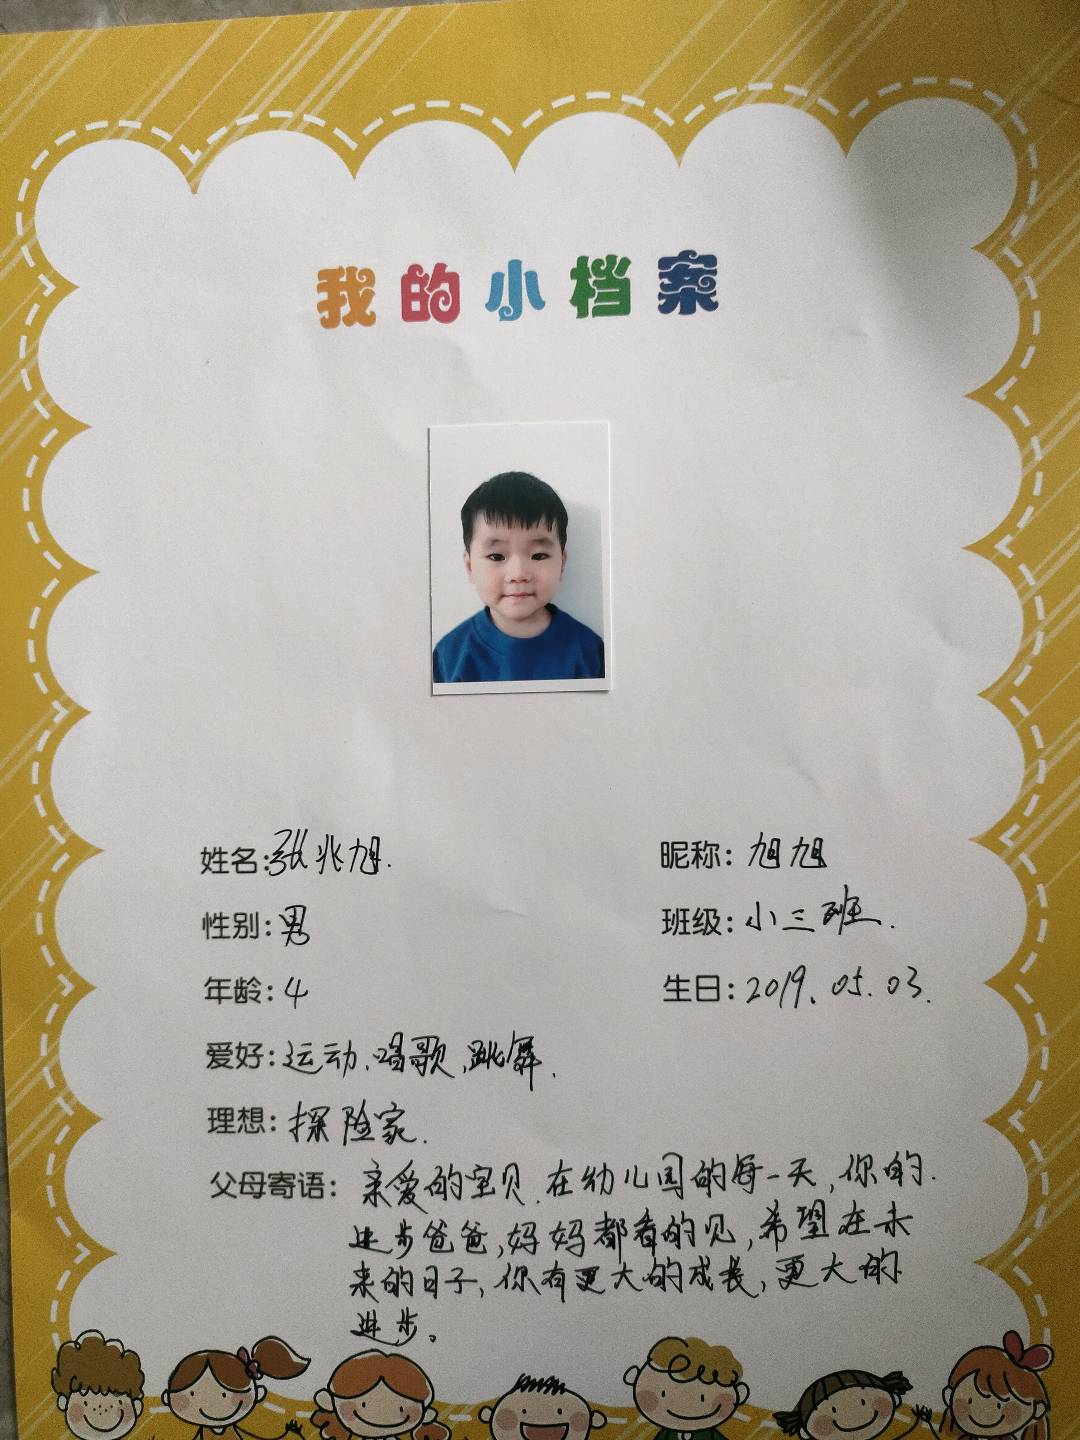 我的小档案
姓名:张兆旭. 昵称:旭旭
性别:男 班级:小三班.
年龄:4 生日:2019.05.03.
爱好:运动、唱歌、跳舞.
理想:探险家.
父母寄语:亲爱的宝贝,在幼儿园的每一天,你的
进步爸爸,妈妈都看的见,希望在未
来的日子,你有更大的成长,更大的
进步。